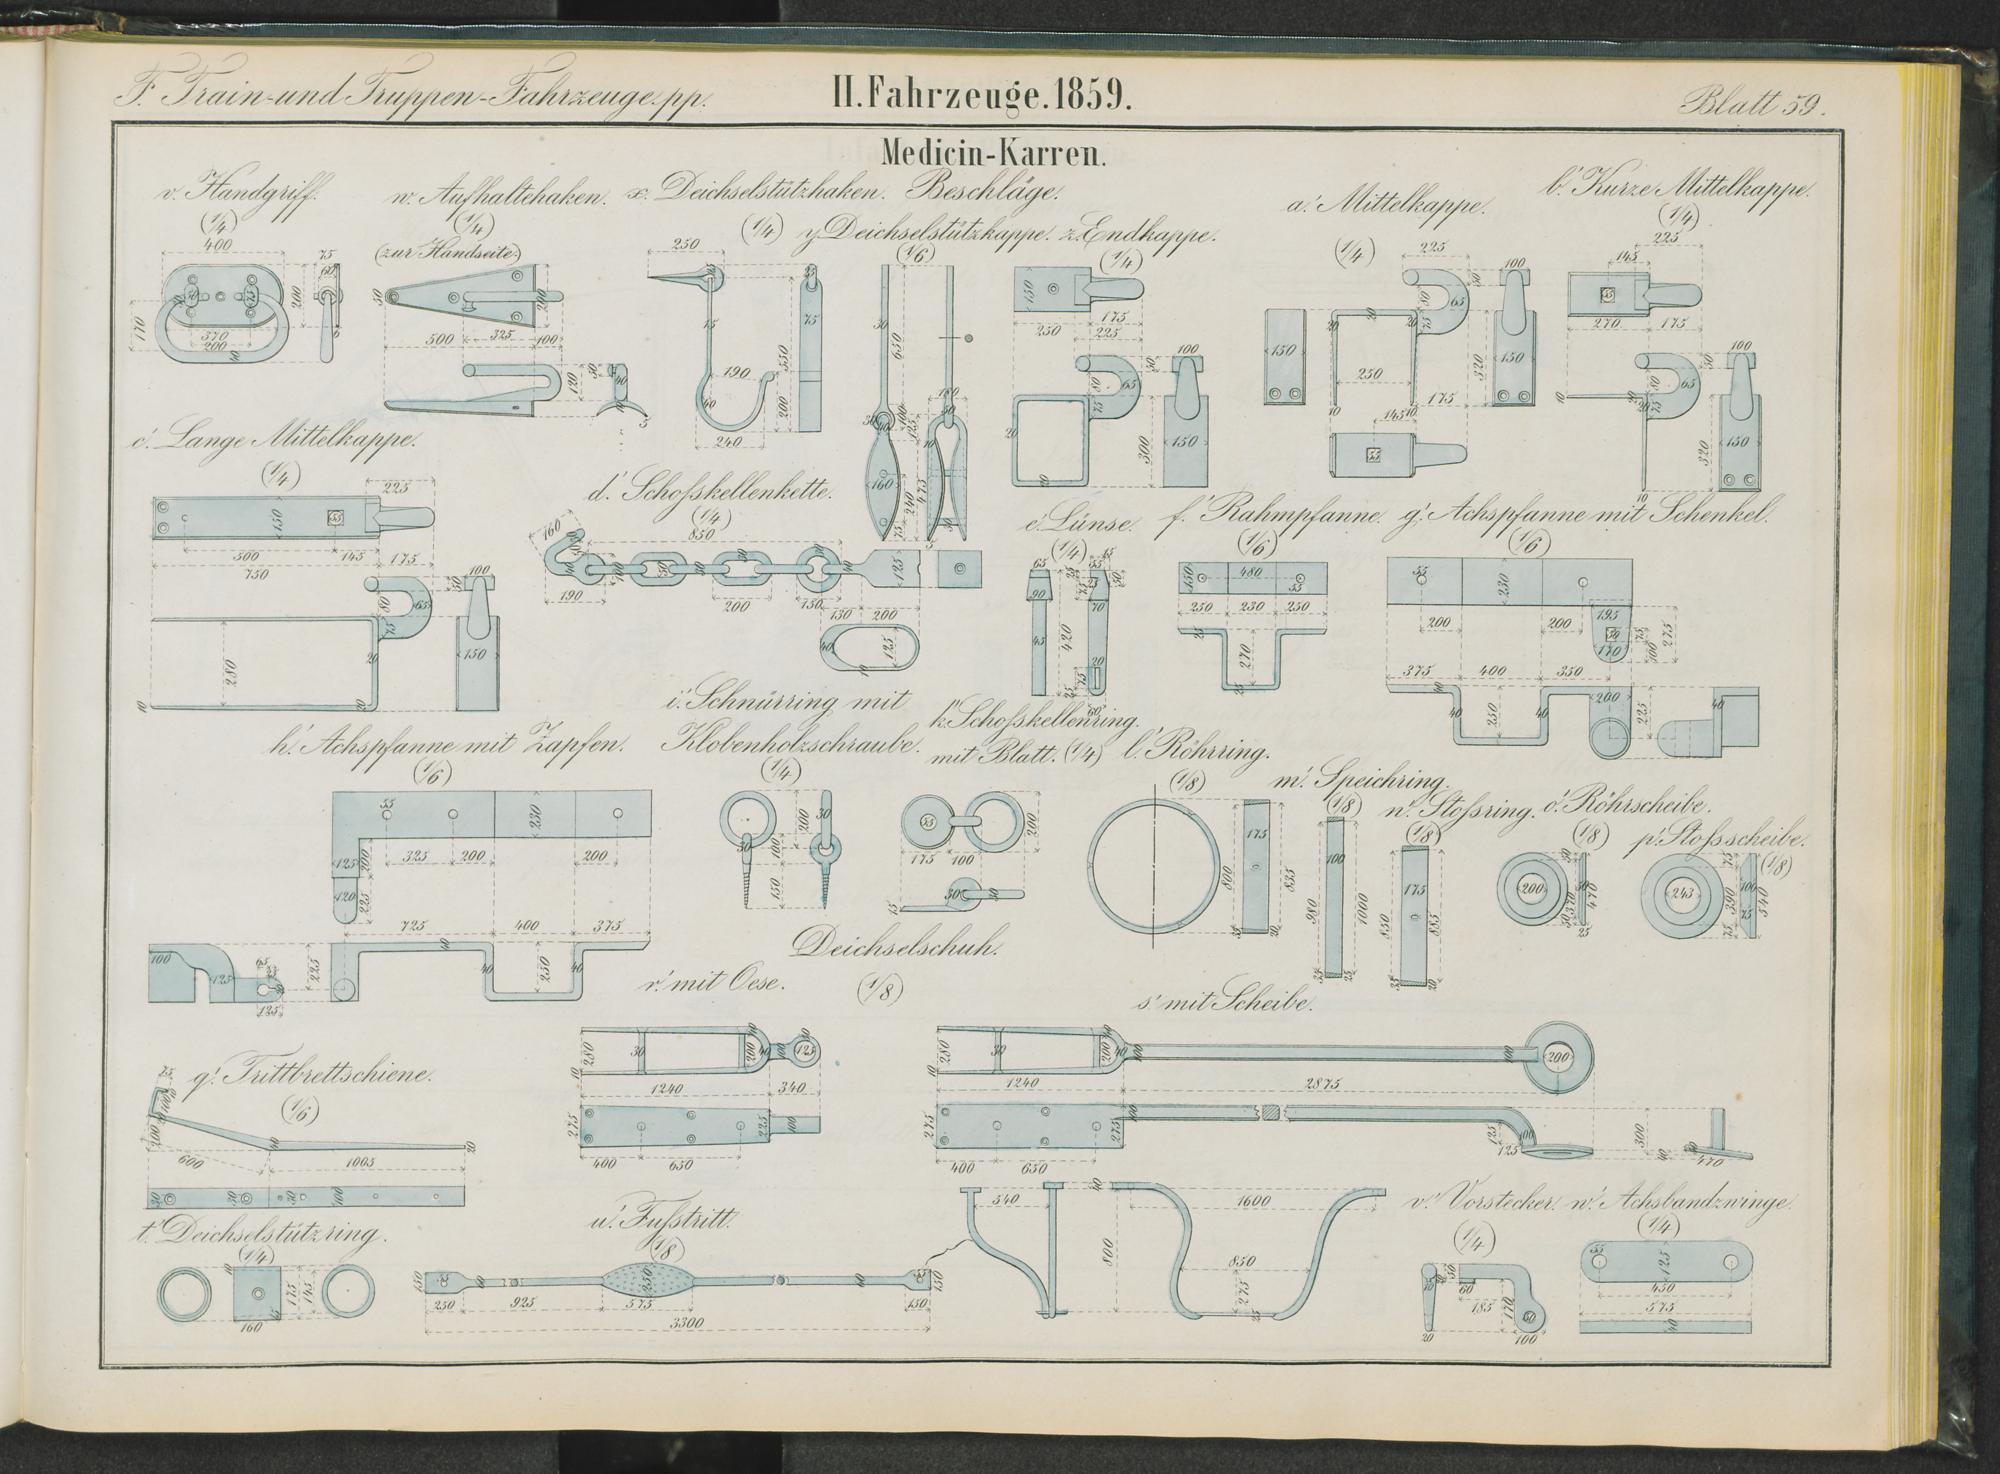 F. Train-und Truppen-Fahrzeuge.pp.
II. Fahrzeuge. 1859.
Blatt 59.
Medicin-Karren.
Beschläge.
v. Handgriff.
(1/4)
400
75
60
200
170
370
200
40
w. Aufhaltehaken.
(1/4)
(zur Handseite)
50
200
500
325
100
120
50
40
x. Deichselstützhaken.
(1/4)
250
75
530
190
200
40
240
y. Deichselstützkappe.
(1/6)
30
650
180
100
125
160
240
475
75
z. Endkappe.
(1/4)
150
250
175
225
100
50
80
65
75
20
300
150
a'. Mittelkappe.
(1/4)
225
100
50
80
65
75
20
150
250
320
150
175
145
10
55
b'. Kurze Mittelkappe.
(1/4)
225
145
55
270
175
100
50
80
65
10
20
320
150
10
c'. Lange Mittelkappe.
(1/4)
225
150
55
500
145
750
175
100
50
80
65
75
280
20
150
10
d'. Schofskellenkette.
(1/4)
850
160
190
200
150
125
130
200
40
125
e'. Lünse.
(1/4)
65
90
70
45
420
20
75
25
60
f'. Rahmpfanne.
(1/6)
150
480
55
250
230
250
270
25
g'. Achspfanne mit Schenkel.
(1/6)
55
230
200
200
195
50
170
75
100
275
375
400
350
40
250
40
200
225
40
h'. Achspfanne mit Zapfen.
(1/6)
55
230
125
200
325
200
200
120
225
725
400
375
40
100
125
225
40
250
40
125
i'. Schnürring mit
Klobenholzschraube.
(1/4)
200
30
100
150
k'. Schofskellenring.
mit Blatt. (1/4)
55
200
175
100
30
15
l'. Röhrring.
(1/8)
175
800
835
20
m'. Speichring.
(1/8)
100
980
1000
25
n'. Stofsring.
(1/8)
175
850
885
20
o'. Röhrscheibe.
(1/8)
200
50
370
470
25
p'. Stofsscheibe.
(1/8)
243
75
390
100
540
75
q'. Trittbrettschiene.
(1/6)
75
100
200
40
20
600
1005
100
Deichselschuh.
(1/8)
r'. mit Oese.
280
30
200
40
100
125
10
1240
340
275
225
100
400
650
s'. mit Scheibe.
280
30
200
100
100
200
10
1240
2875
275
275
100
400
650
125
100
125
300
40
470
t'. Deichselstützring.
(1/4)
175
145
160
u'. Fufstritt.
(1/8)
150
60
250
60
150
250
925
575
150
3300
540
40
1600
800
850
275
25
v'. Vorstecker.
(1/4)
50
60
185
170
60
20
100
w'. Achsbandzwinge.
(1/4)
55
125
450
575
40